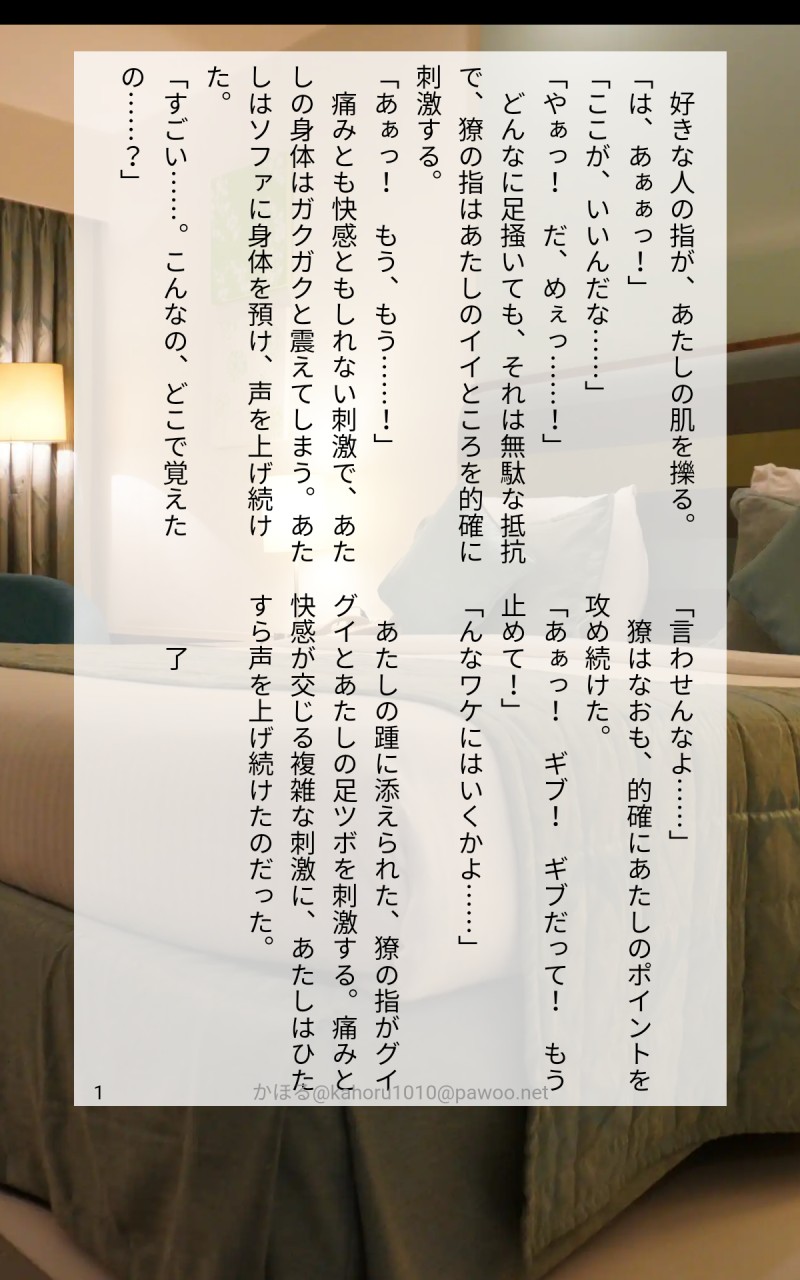 好きな人の指が、あたしの肌を擽る。
「は、あぁぁっ！」
「ここが、いいんだな……」
「やぁっ！　だ、めぇっ……！」
　どんなに足掻いても、それは無駄な抵抗
で、獠の指はあたしのイイところを的確に
刺激する。
「あぁっ！　もう、もう……！」
　痛みとも快感ともしれない刺激で、あた
しの身体はガクガクと震えてしまう。あた
しはソファに身体を預け、声を上げ続け
た。
「すごい……。こんなの、どこで覚えた
の……？」
「言わせんなよ……」
　獠はなおも、的確にあたしのポイントを
攻め続けた。
「あぁっ！　ギブ！　ギブだって！　もう
止めて！」
「んなワケにはいくかよ……」
　あたしの踵に添えられた、獠の指がグイ
グイとあたしの足ツボを刺激する。痛みと
快感が交じる複雑な刺激に、あたしはひた
すら声を上げ続けたのだった。
了
1
かほる@kahoru1010@pawoo.net